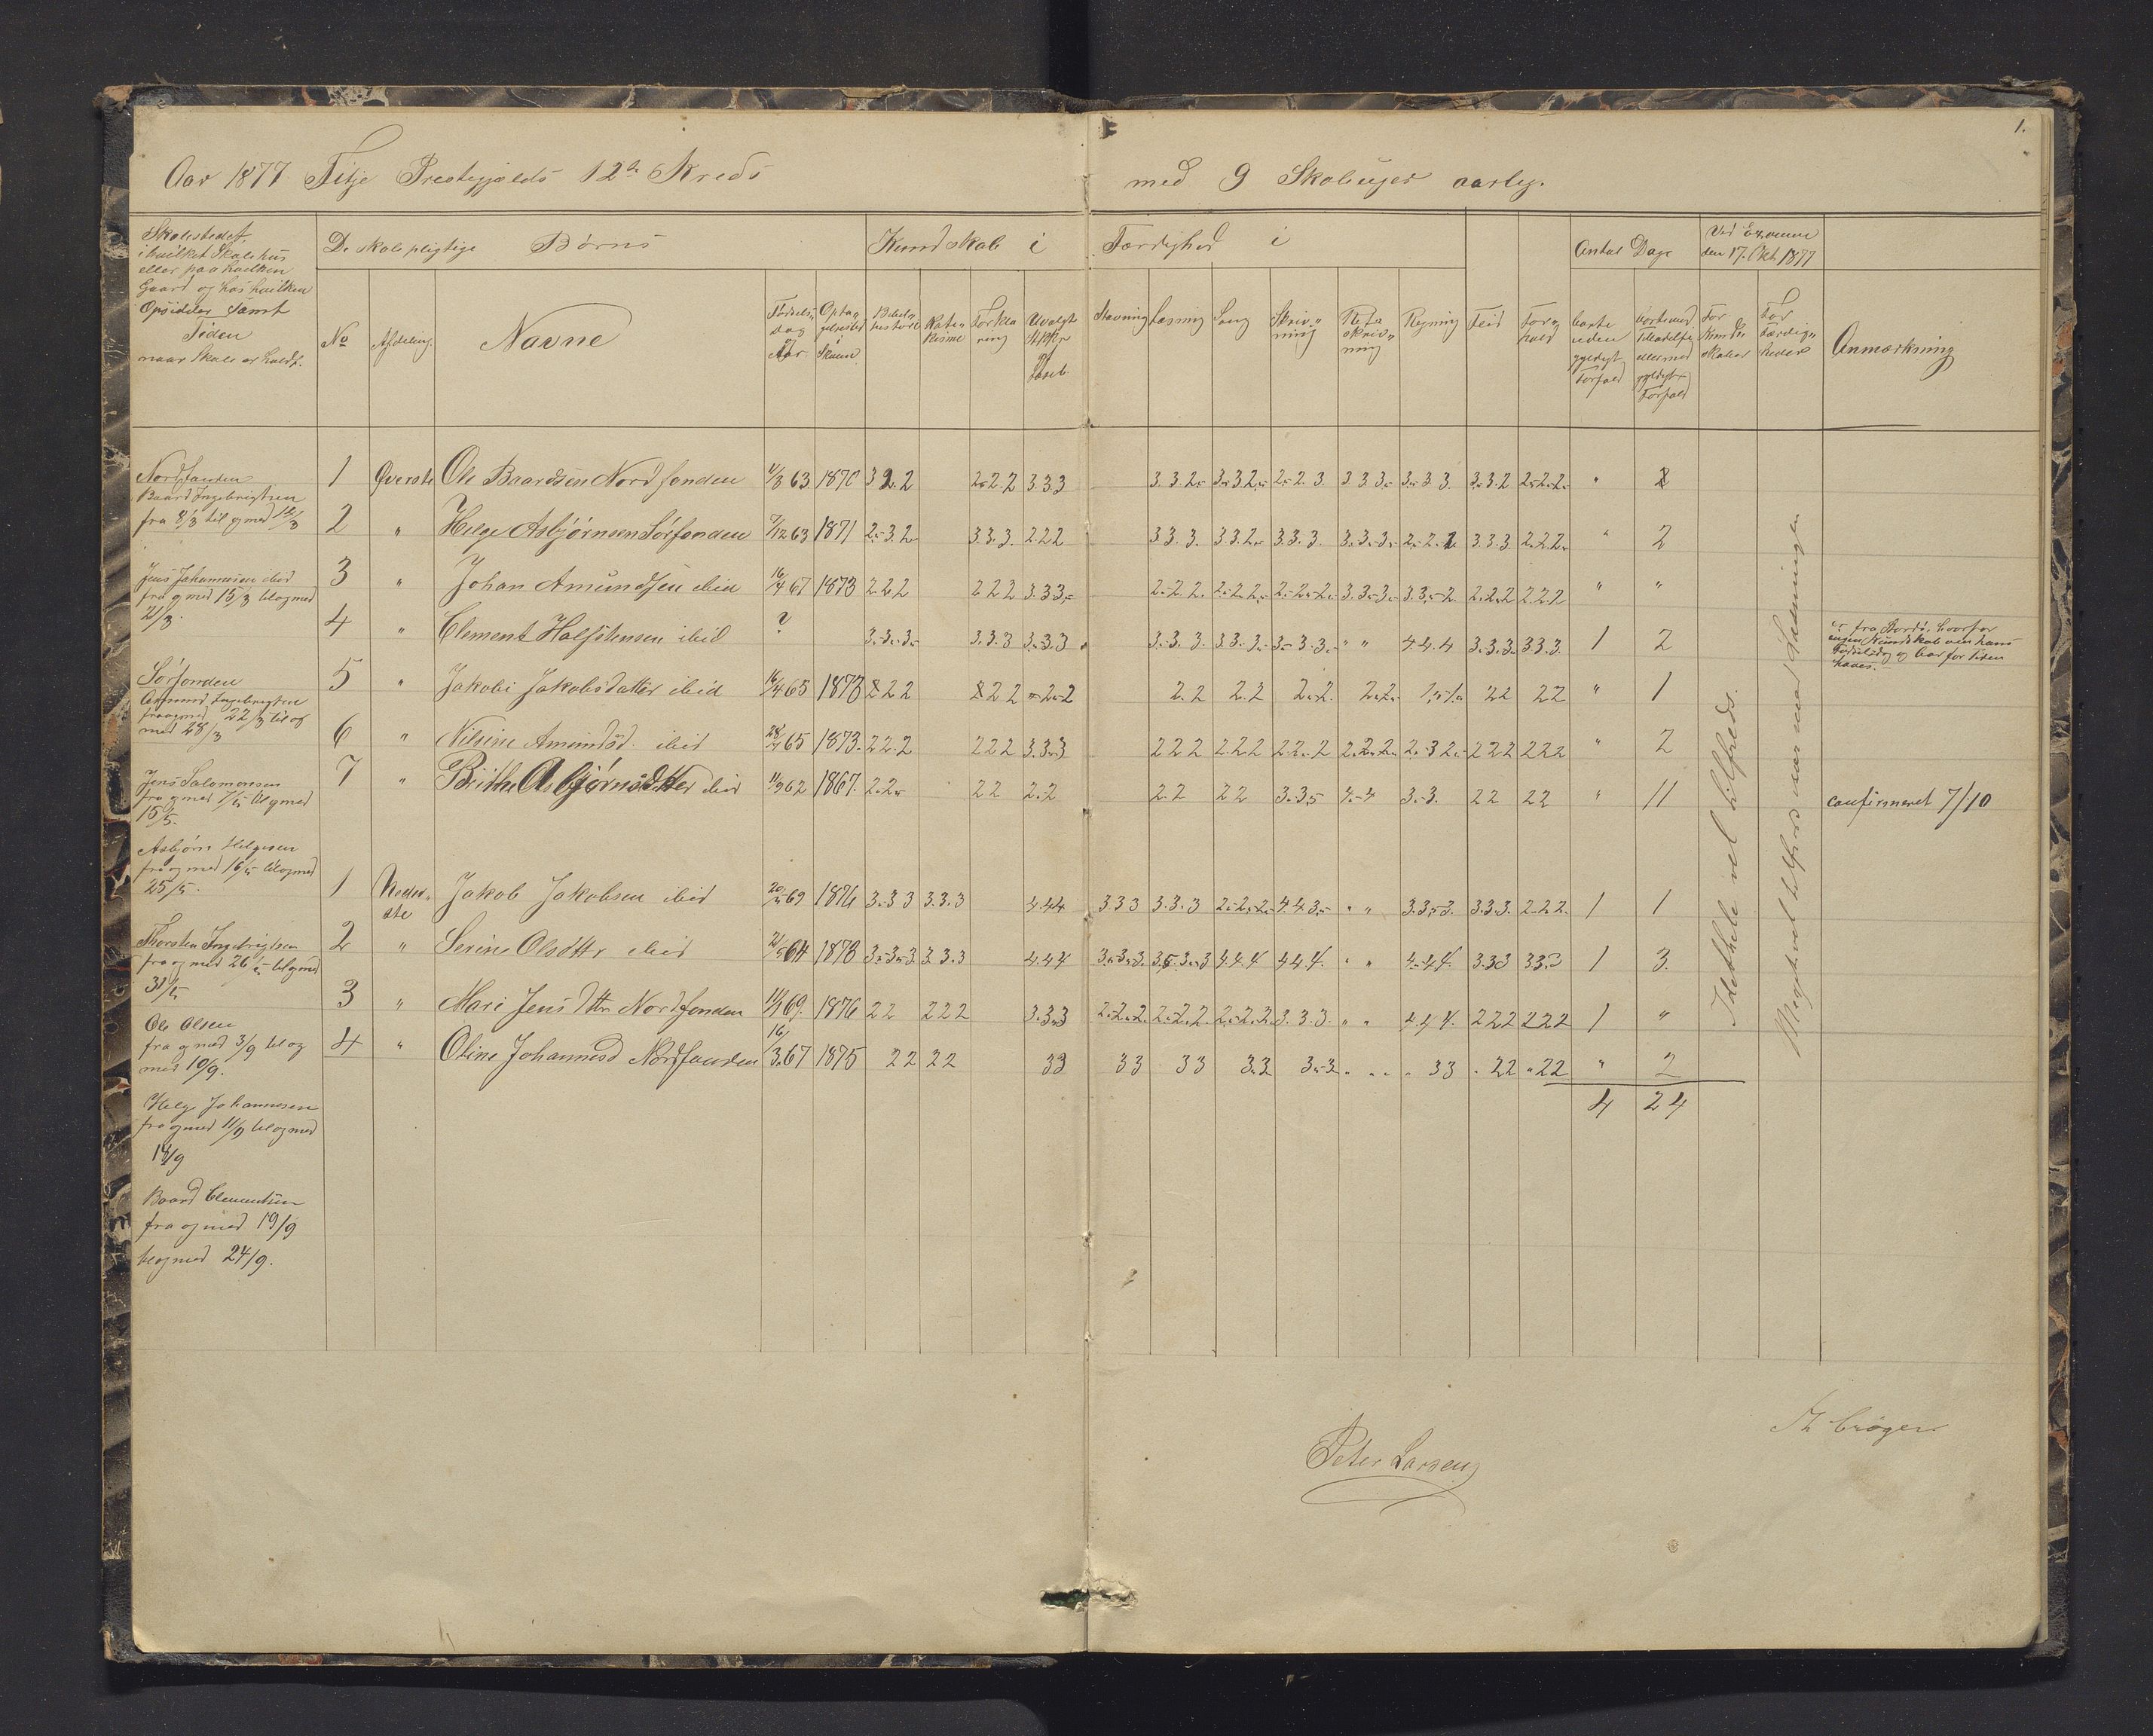 1.
Aar 1877 Fitje Prestegjelds 12te Kreds med 9 Skoleuger aarlig.
Skolestedet,
i hvilket Skolehus
eller paa hvilken
Gaard og hos hvilken
Opsidder samt
Tiden
naar Skole er holdt.
De skolepligtige Børns
Kundskab i
Færdighed i
Antal Dage
Ved Examen
den 17. Okt. 1877
No
Afdeling.
Navne
Fødsels-
dag
og
Aar
Opta-
gelsestid
i
Skolen
Bibel-
historie
Kate-
kisme
Forkla
ring
Udvalgte
Stykker
af
Læseb.
Stavning
Læsning
Sang
Skriv-
ning
Ret-
skriv-
ning
Regning
Flid
For-
hold
borte
uden
gyldigt
Forfald
borte med
Tilladelse
eller med
gyldigt
Forfald
For
Kund-
skaber
For
Færdig-
heder
Anmærkning
Nordfonden
Baard Ingebrigtsen
fra 8/3 til og med 14/3
Jens Johannesen ibid
fra og med 15/3 til og med
21/3.
Sørfonden
Asmund Ingebrigtsen
fra og med 22/3 til og
med 28/3
Jens Salomonsen
fra og med 7/5 til og med
15/5.
Asbjørn Helgesen
fra og med 16/5 til og med
25/5.
Thorsten Ingebrigtsen
fra og med 26/5 til og med
31/5
Ole Olsen
fra og med 3/9 til og
med 10/9.
Helge Johannesen
fra og med 11/9 til og med
18/9
Baard Clementsen
fra og med 19/9
til og med 24/9.
1 Øverste Ole Baardsen Nordfonden 11/3 63 1870 3 2 2 2.2.2 3.3.3 3.3.2 3.3.2 2.2.3 3.3.3 3.3.3 3.3.2 2.2.2 "
2 " Helge Asbjørnsen Sørfonden 7/12 63 1871 2.3.2 3.3.3. 2.2.2 3.3.3. 3.3.2 3.3.3. 3.3.3. 2.2.2 3.3.3 2.2.2. " 2
3 " Johan Amundsen ibid 16/4 67 1873 2.2.2 2 2 2 3.3.3 2.2.2. 2.2.2. 2.2.2. 3.3.3. 3.3.2. 2.2.2 2.2.2 " "
4 " Clement Halfstensen ibid ? 3.3.3. 3.3.3 3.3.3 3.3.3 3.3.3. 3.3.3. " " 4.4.4 3.3.3. 3.3.3. 1 2 er fra Bordø, hvorfor
ingen Kundskab om hans
Fødselsdag og har for Tiden
haves.
5 " Jakobi Jakobsdatter ibid 16/4 65 1873 2 2 2 2 2 2 2.2 2.2 2.2 2.2. 2.2. 1.1. 22 22 " 1
6 " Nilsine Amundsd. ibid 28/7 65 1873. 2 2.2 2 2 2 3.3.3 2 2 2 2.2.2 2.2.2 2.2.2. 2.3.2. 2 2 2 2 2 2 " 2
7 " Brithe Asbjørnsdatter ibid 11/9 62 1867. 2.2. 2 2 2.2 2.2 2 2 3.3. 4.4 3.3. 22 22 " 11 confirmeret 7/10
1 Neder-
ste Jakob Jakobsen ibid 20/5 69 1876 3.3 3 3.3.3 4.4.4 3 3 3 3.3.3 2.2.2. 4.4.3. " " 3.3.3. 3.3.3. 2.2.2. 1 1
2 " Serine Olsdttr ibid 21/5 64 1873 3.3.3 3 3.3 4.4.4 3.3.3. 3.3.3 4.4.4 4.4.4. " " 4.4.4. 3.3 3 3 3.3 1 3.
3 " Mari Jensdttr Nordfonden 11/1 69. 1876 2 2 2 2 2 3.3.3 2.2.2. 2.2.2 2.2.2 3.3.3. " " 4.4.4. 2 2 2 2 2 2 1 "
4 " Oline Johannesd Nordfonden 16/3 67 1875 22 22 33 33 33 3.3 3.3 " " " 33 " 22 " 22 " 2
4 24
Idethele vel tilfreds.
Meget vel tilfreds især med
Peter Larsen
Th Crøger